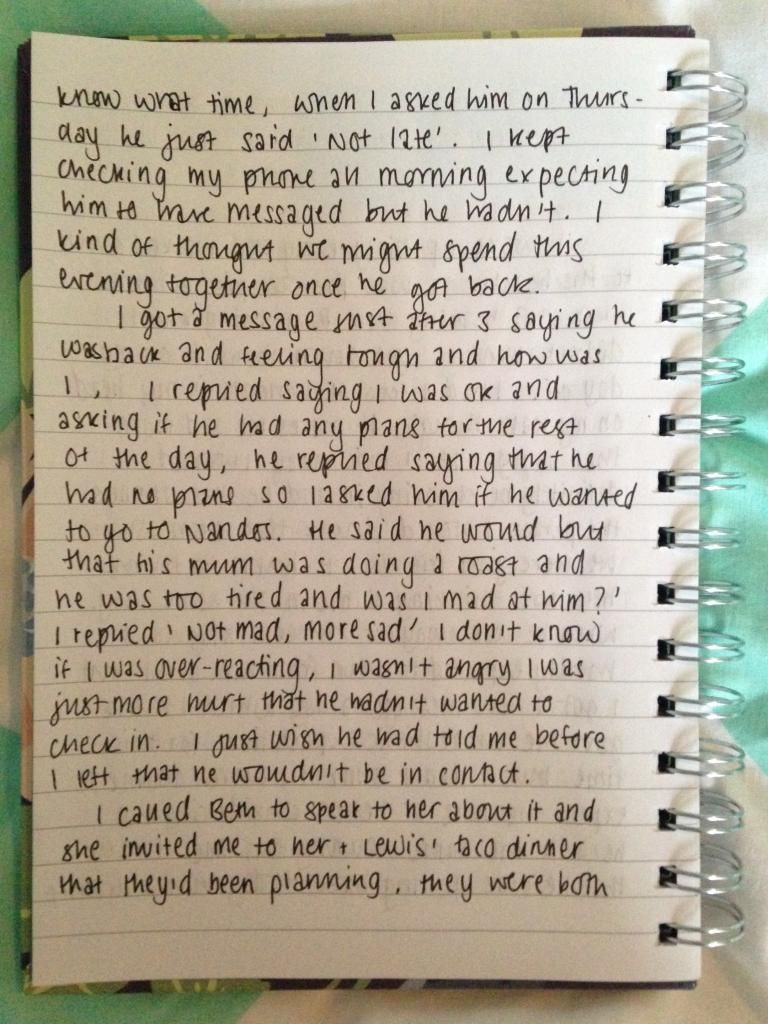 know what time, when I asked him on Thurs-
day he just said 'Not late'. I kept
checking my phone all morning expecting
him to have messaged but he hadn't. I
kind of thought we might spend this
evening together once he got back.
I got a message just after 3 saying he
was back and feeling rough and how was
I, I replied saying I was ok and
asking if he had any plans for the rest
of the day, he replied saying that he
had no plans so I asked him if he wanted
to go to Nandos. He said he would but
that his mum was doing a roast and
he was too tired and was I mad at him?'
I replied 'Not mad, more sad' I don't know
if I was over-reacting, I wasn't angry I was
just more hurt that he hadn't wanted to
check in. I just wish he had told me before
I left that he wouldn't be in contact.
I called Beth to speak to her about it and
she invited me to her + Lewis' taco dinner
that they'd been planning, they were both